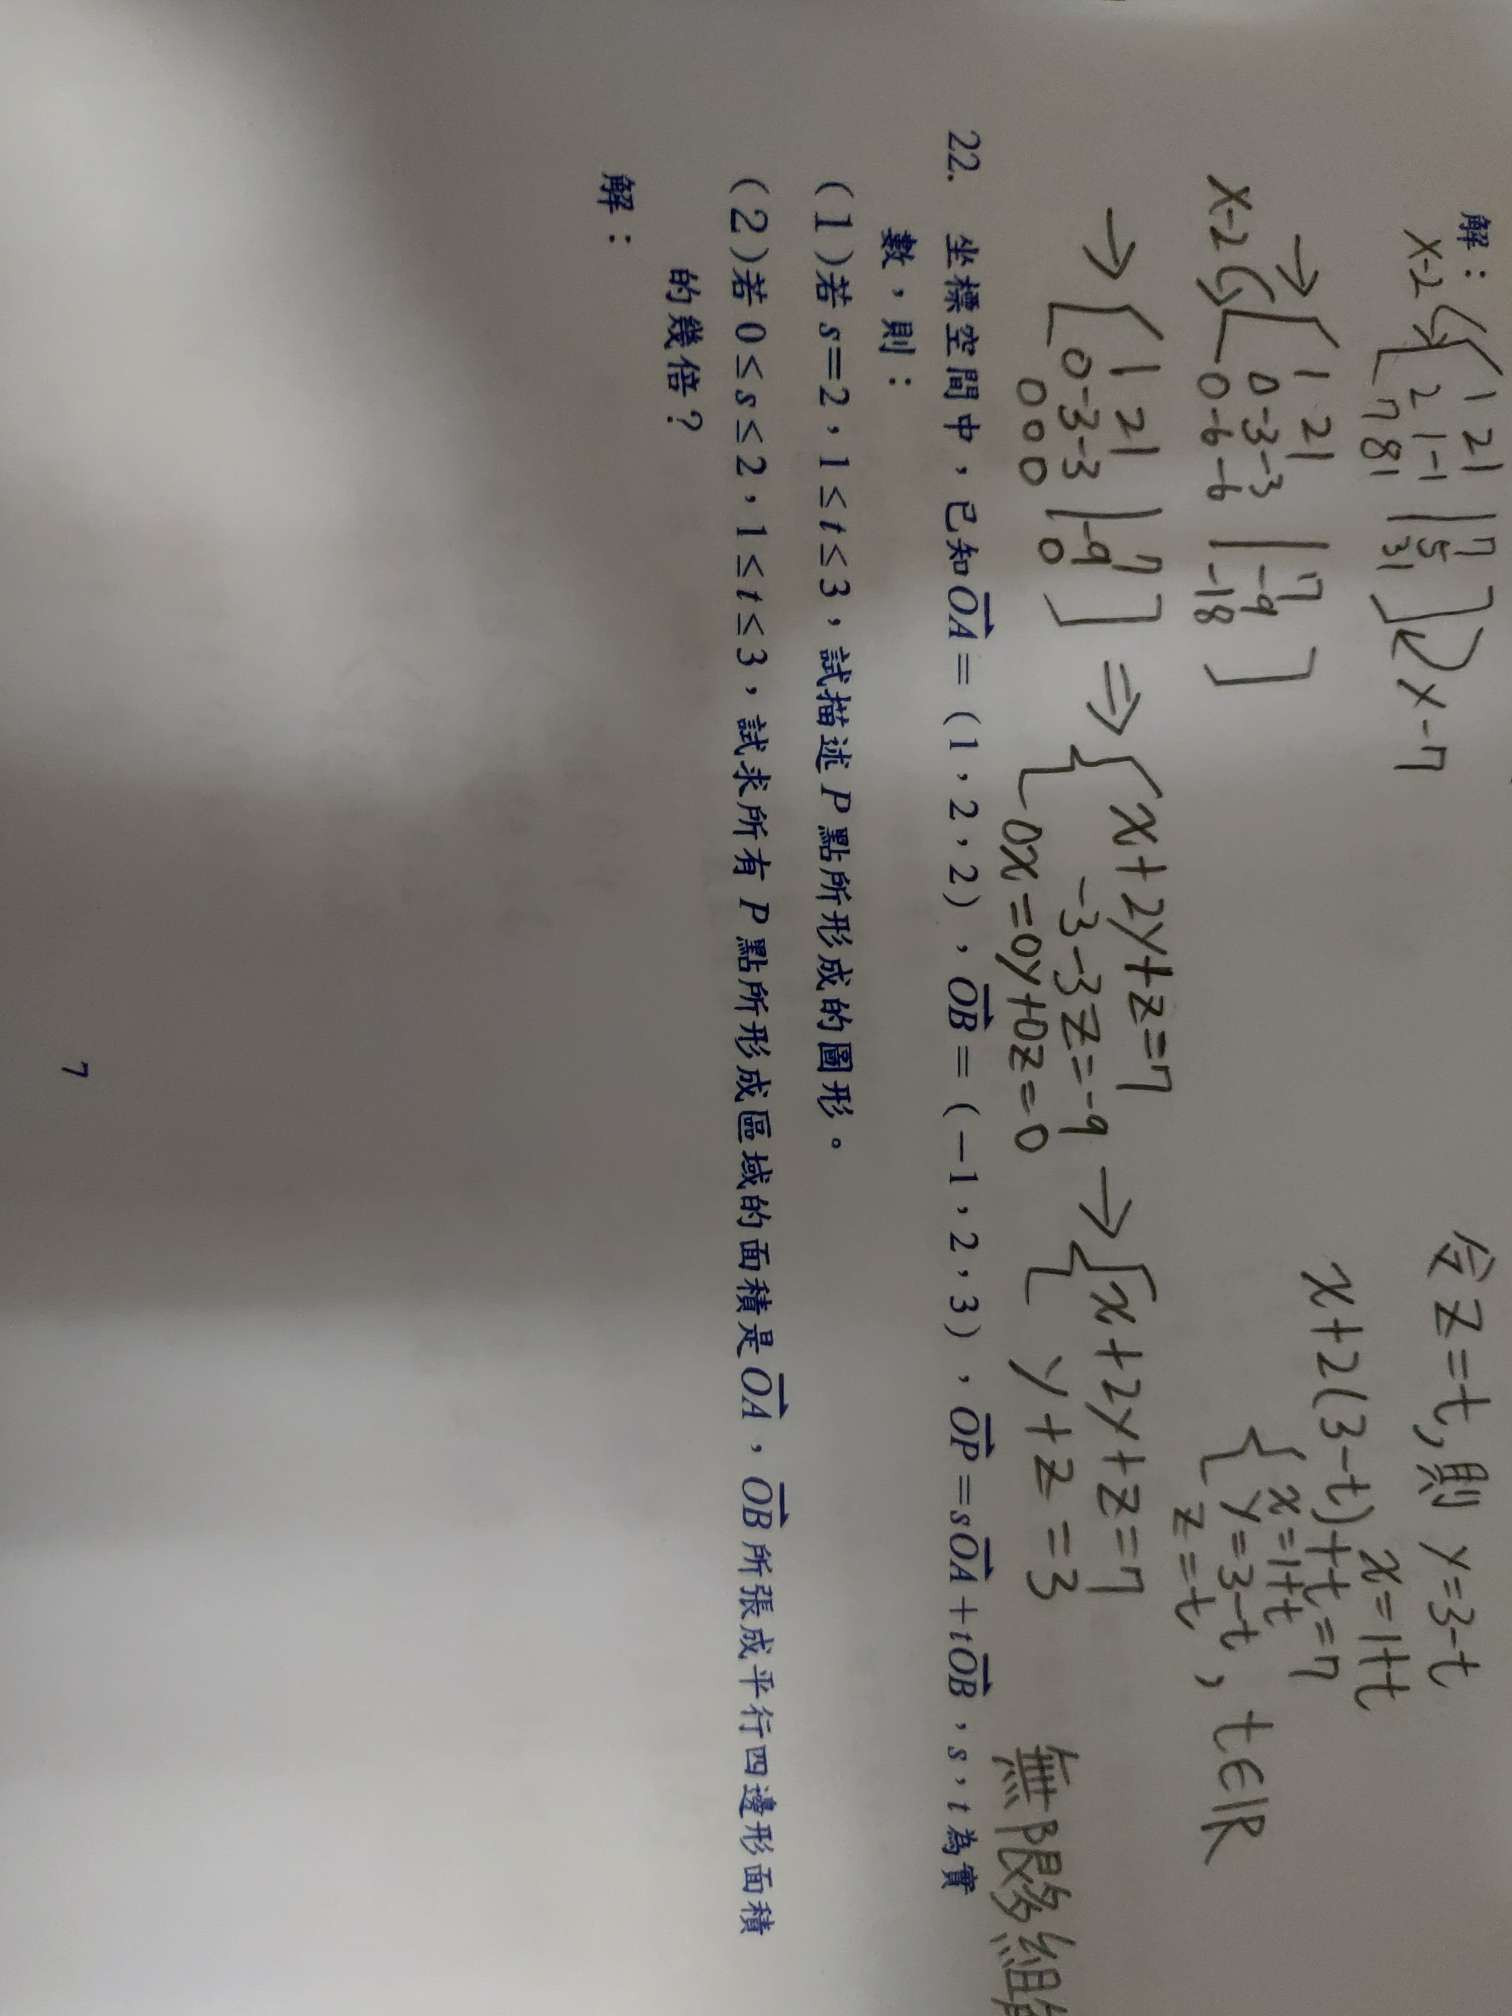 解：
×-2 [1 2 1 | 7
2 1 -1 | 5
7 8 1 | 31] ×-7
→ [1 2 1 | 7
×-2 0 -3 -3 | -9
0 -6 -6 | -18]
→ [1 2 1 | 7
0 -3 -3 | -9
0 0 0 | 0]
⇒ { x+2y+z=7
-3-3z=-9
0x=0y+0z=0
→ { x+2y+z=7
y+z=3
令z=t,則 y=3-t
x=1+t
x+2(3-t)+t=7
{ x=1+t
y=3-t , t∈R
z=t
無限多組
22. 坐標空間中，已知OA=(1，2，2)，OB=(−1，2，3)，OP=sOA+tOB，s，t為實
數，則：
(1)若 s=2，1≤t≤3，試描述P點所形成的圖形。
(2)若 0≤s≤2，1≤t≤3，試求所有P點所形成區域的面積是OA，OB所張成平行四邊形面積
的幾倍？
解：
7